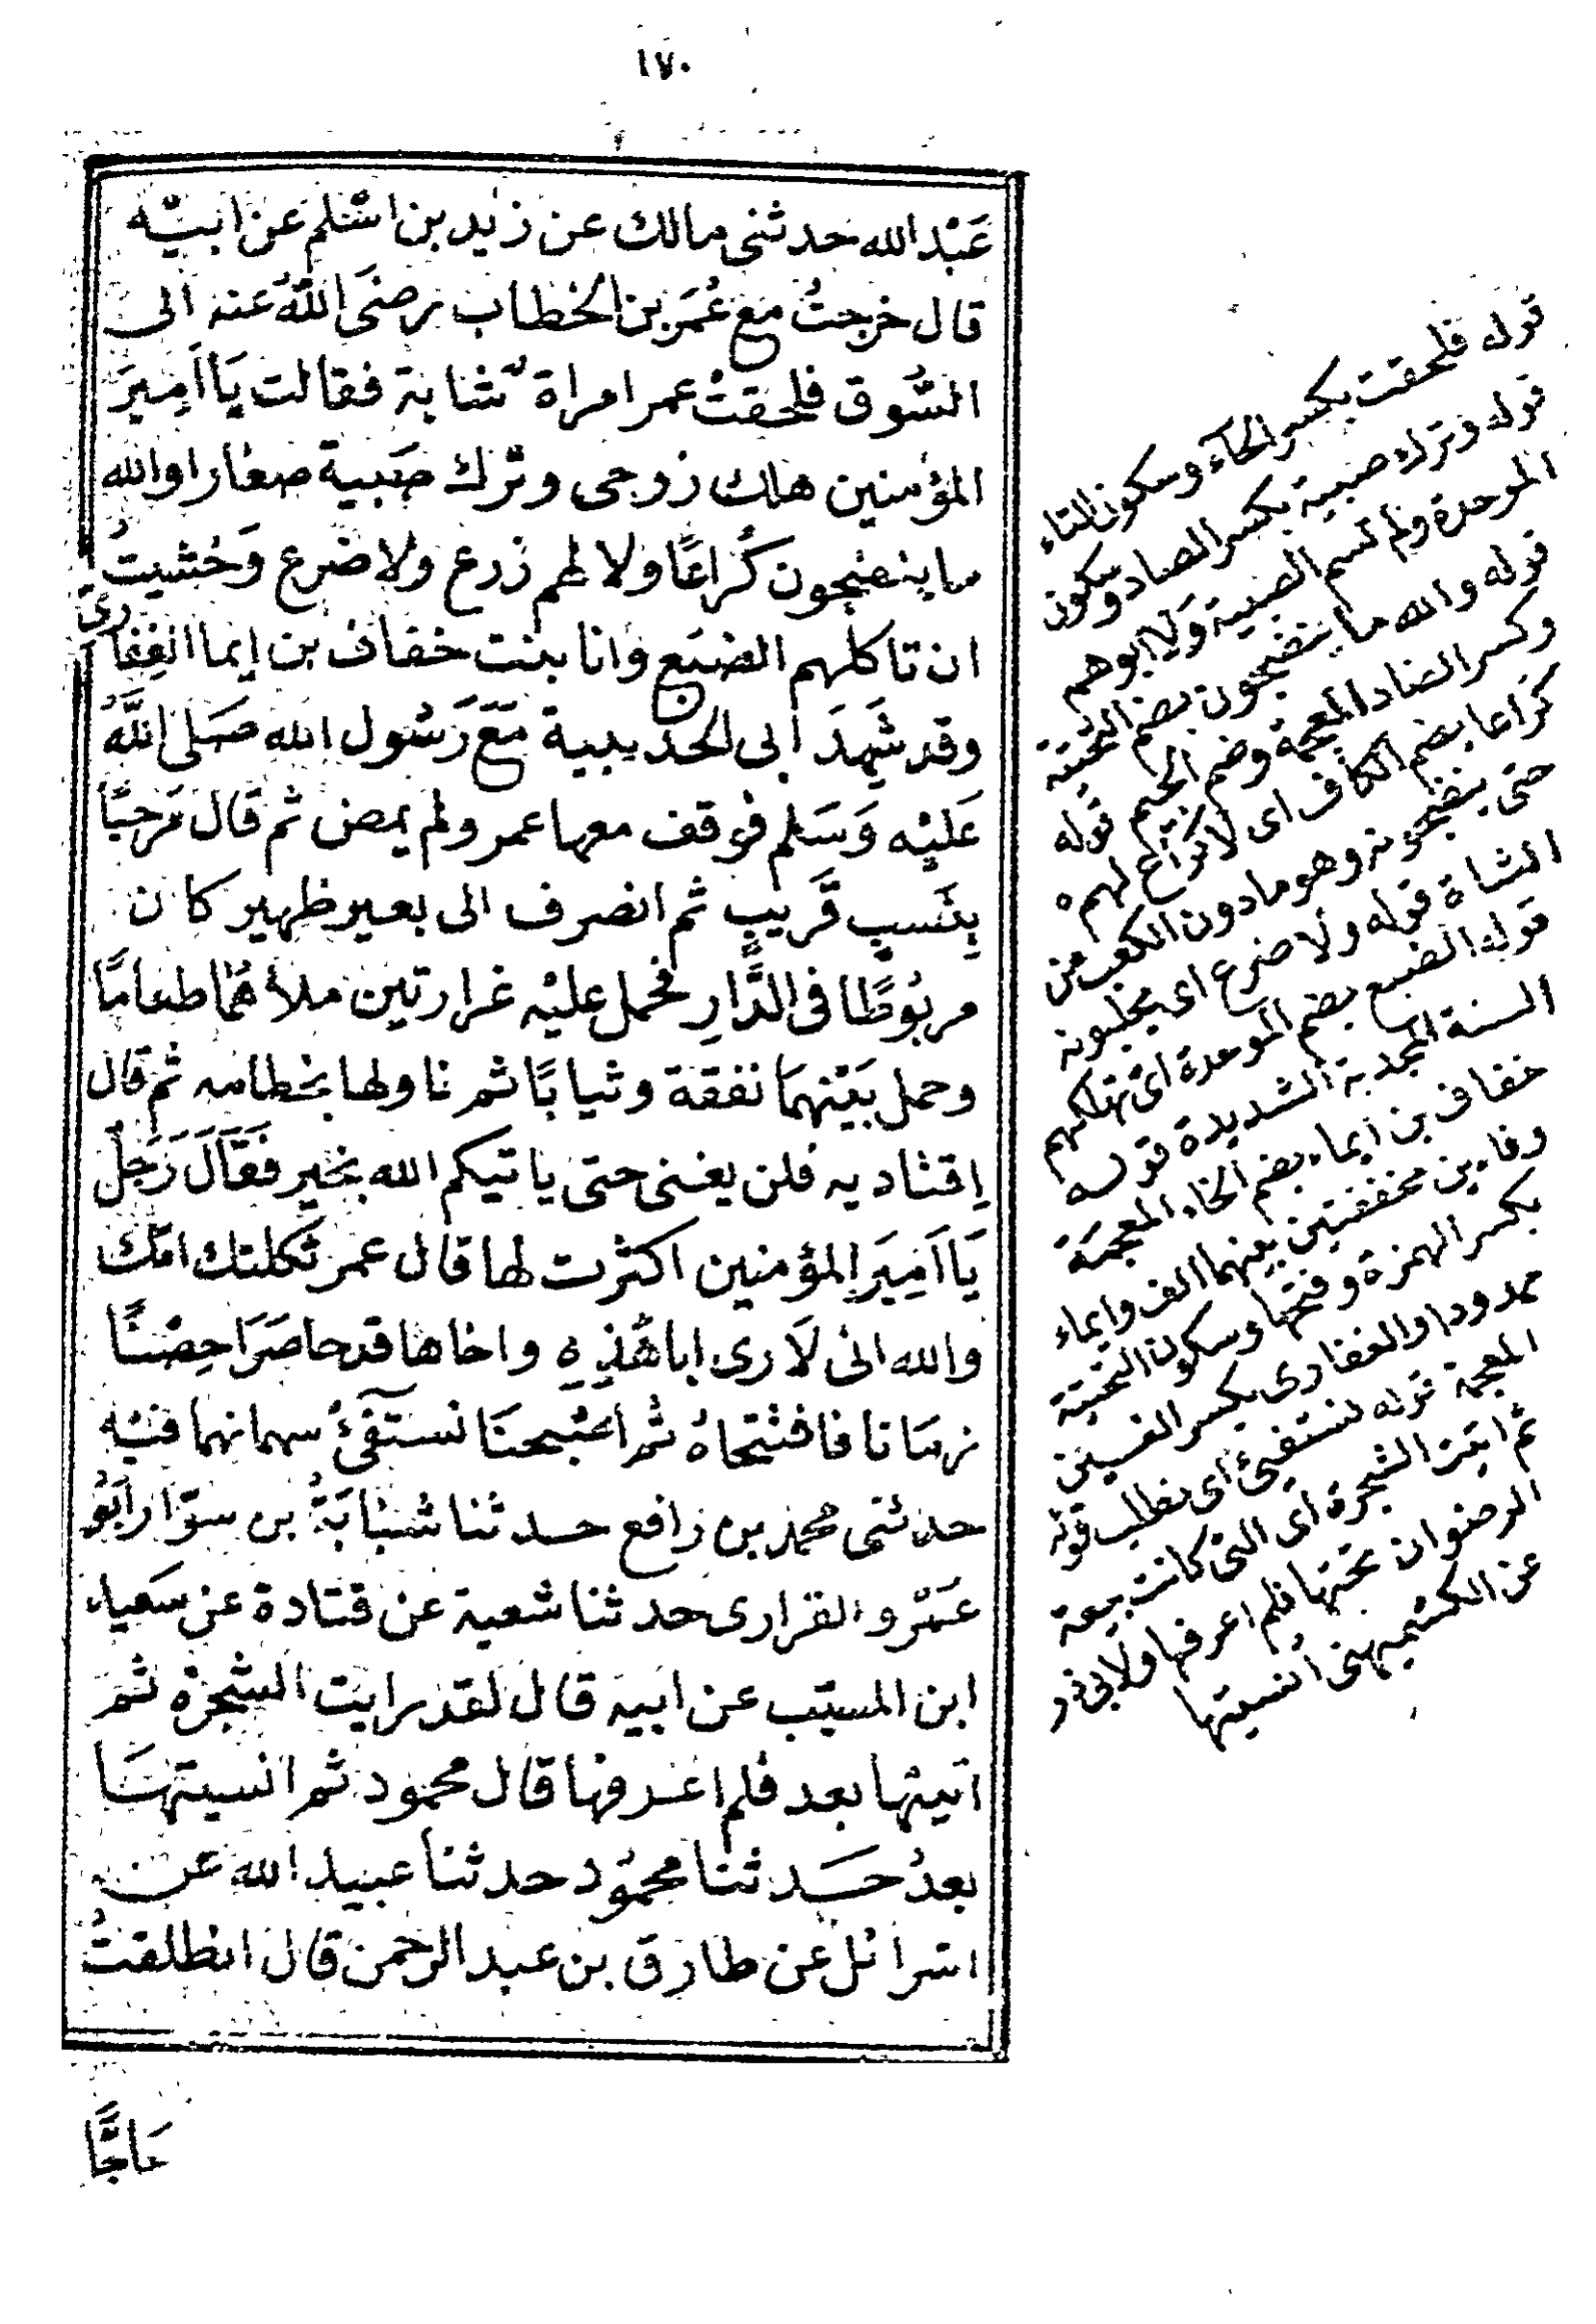 ١٧٠
عَبْد الله حدثنى مالك عن زيد بن اسْلم عن ابيْه
قال خرجتُ مع عُمَر بن الخطاب رضَى اللهُ عنه الى
السُّوق فلحقتْ عمر امراة شابة فقالت يَا اَمِيرَ
المؤمنين هلك زوجى وترك صبية صغارا والله
ما ينضجون كُراعًا ولا لهم زرع ولا ضرع وَخشيتُ
ان تاكلهم الضبَع وانا بنت خفاف بن إيما الغِفارى
وقد شَهِدَ ابى الحديبية مَعَ رَسُول الله صَلى اللهُ
عَليْه وَسَلم فوقف معها عمر ولم يمض ثم قال مَرحبًا
بِنَسبٍ قَريبٍ ثم انصرف الى بعير ظهير كان
مربُوطًا فى الدَّارِ فحمل عليْه غرارتين ملأهُما طعَامًا
وحمل بَيْنهمَا نفقة وثيابًا ثم ناولها بخطامه ثم قال
اِقتاديه فلن يفنى حتى ياتيكم الله بخير فَقَالَ رَجُل
يَا اَمِيَر المؤمنين اكثرت لها قال عمر ثكلتك امّك
والله انى لَارى ابا هٰذِهِ واخاها قد حاصَرَا حِصْنًا
زمَانا فافتتحاهُ ثم اَصْبحنَا نستفئُ سهمانهما فيْه
حدثنى محمد بن رافع حدثنا شبَابَةُ بن سوّار ابُو
عَمْرو الفزارى حدثنا شعبة عن قتادة عن سَعيد
ابن المسيّب عن ابيه قال لقد رايت الشجرة ثم
اتيتها بعد فلم اعرفها قال محمود ثم انسيتهَا
بعدُ حَدثنا محمُود حدثنا عبيد الله عن
اسرائل عن طارق بن عبد الرحمن قال انطلقتُ
حَاجًّا
قوله فلحقت بكسر الحاء وسكون التاء
قوله وترك صبية بكسر الصاد وسكون
الموحدة ولم تسم الصبية ولا ابوهم
قوله والله ما ينضجون بضم التحتية
وكسر الضاد المعجمة وضم الجيم قوله
كراعا بضم الكاف اى لا كراع لهم
حتى ينضجونه وهو ما دون الكعب من
الشاة قوله ولا ضرع اى يحلبونه
قوله الضبع بضم الموحدة اى تهلكهم
السنة المجدبة الشديدة قوله
خفاف بن ايماء بضم الخاء المعجمة
وفاءين مخففتين بينهما الف وايماء
بكسر الهمزة وفتحها وسكون التحتية
ممدودا والغفارى بكسر الغين
المعجمة قوله نستفئ اى نطلب قوله
ثم اتيت الشجرة اى التى كانت بيعة
الرضوان تحتها فلم اعرفها ولابى ذر
عن الكشميهنى أنسيتها